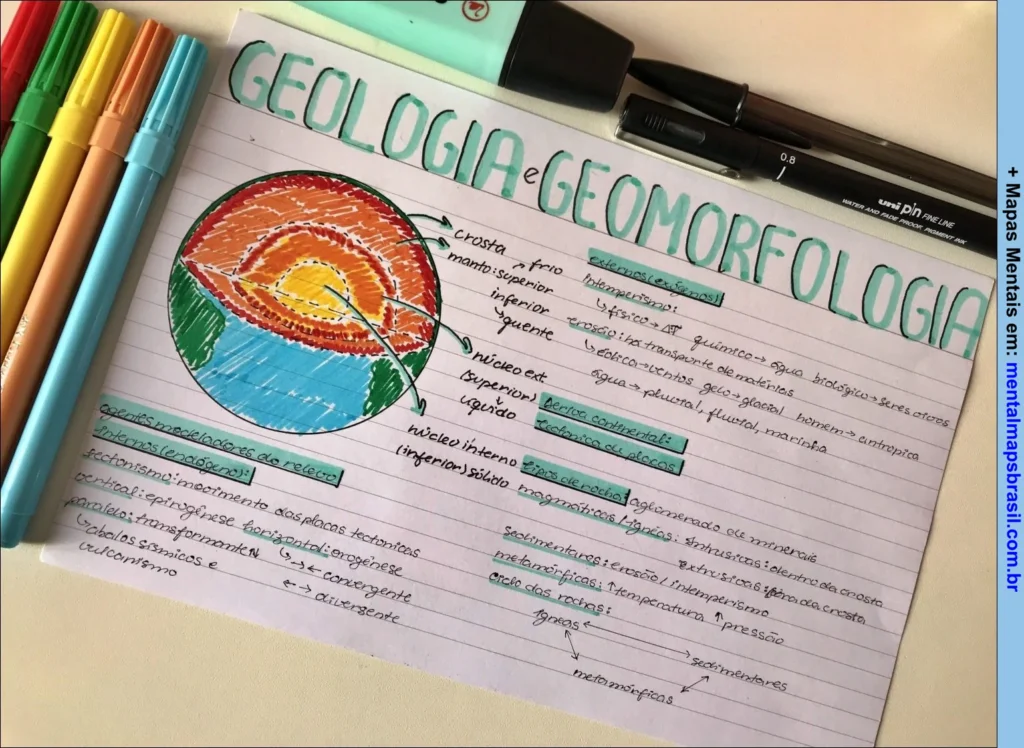 GEOLOGIA e GEOMORFOLOGIA
crosta
manto: superior → frio
inferior
↳ quente
núcleo ext.
(superior)
líquido
núcleo interno
(inferior) sólido
agentes modeladores do relevo
internos (endógeno):
tectonismo: movimento das placas tectonicas
vertical: epirogênese horizontal: orogênese
paralelo: transformante ⇅
↳ → ← convergente
← → divergente
↳ abalos sísmicos e
vulcanismo
externos (exógenos)
intemperismo:
↳ físico → ΔT químico → água biológico → seres vivos
erosão: há transporte de matérias
↳ eólica → ventos gelo → glacial homem → antropica
água → pluvial, fluvial, marinha
Deriva continental:
tectonica de placas
tipos de rocha: aglomerado de minerais
magmáticas/ígneas: intrusivas: dentro da crosta
extrusivas: fora da crosta
sedimentares: erosão/intemperismo
metamórficas: ↑ temperatura ↑ pressão
ciclo das rochas:
ígneas
sedimentares
metamórficas
0.8
uni pin FINE LINE
WATER AND FADE PROOF, PIGMENT INK
+ Mapas Mentais em: mentalmapsbrasil.com.br